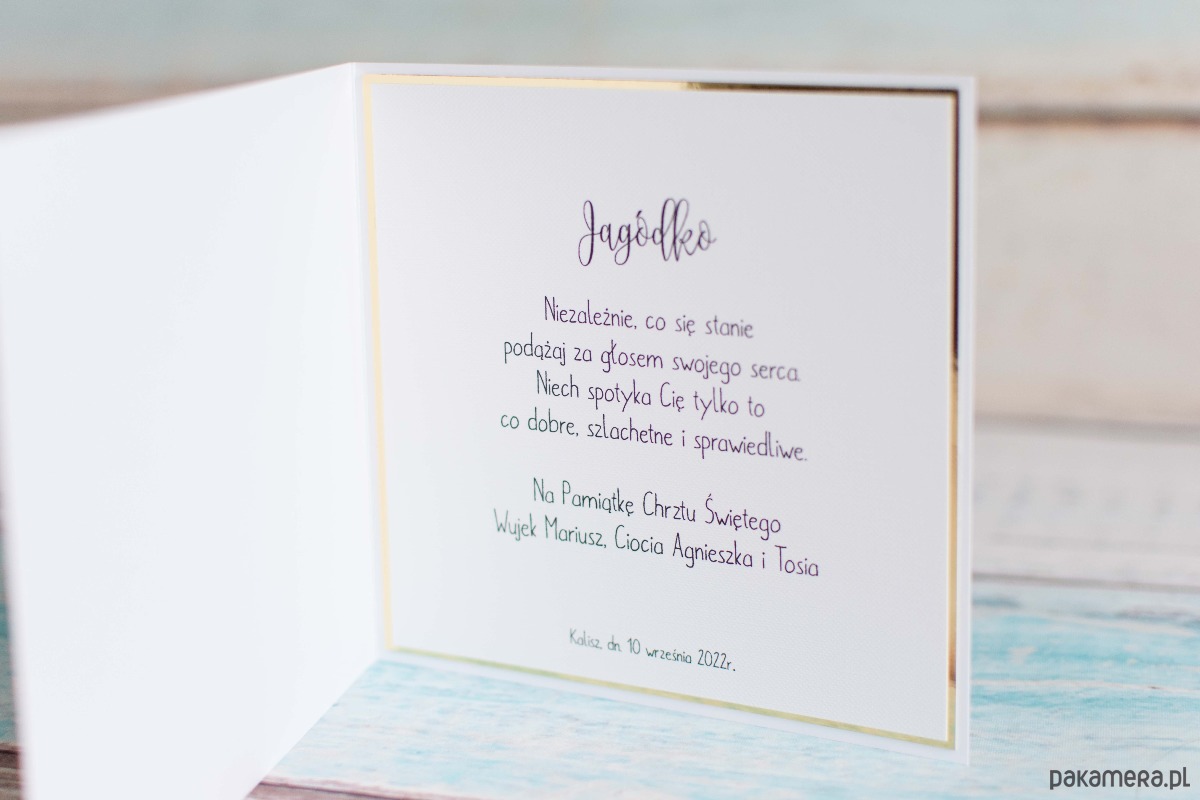 Jagódko
Niezależnie, co się stanie
podążaj za głosem swojego serca.
Niech spotyka Cię tylko to
co dobre, szlachetne i sprawiedliwe.
Na Pamiątkę Chrztu Świętego
Wujek Mariusz, Ciocia Agnieszka i Tosia
Kalisz, dn. 10 września 2022r.
pakamera.pl